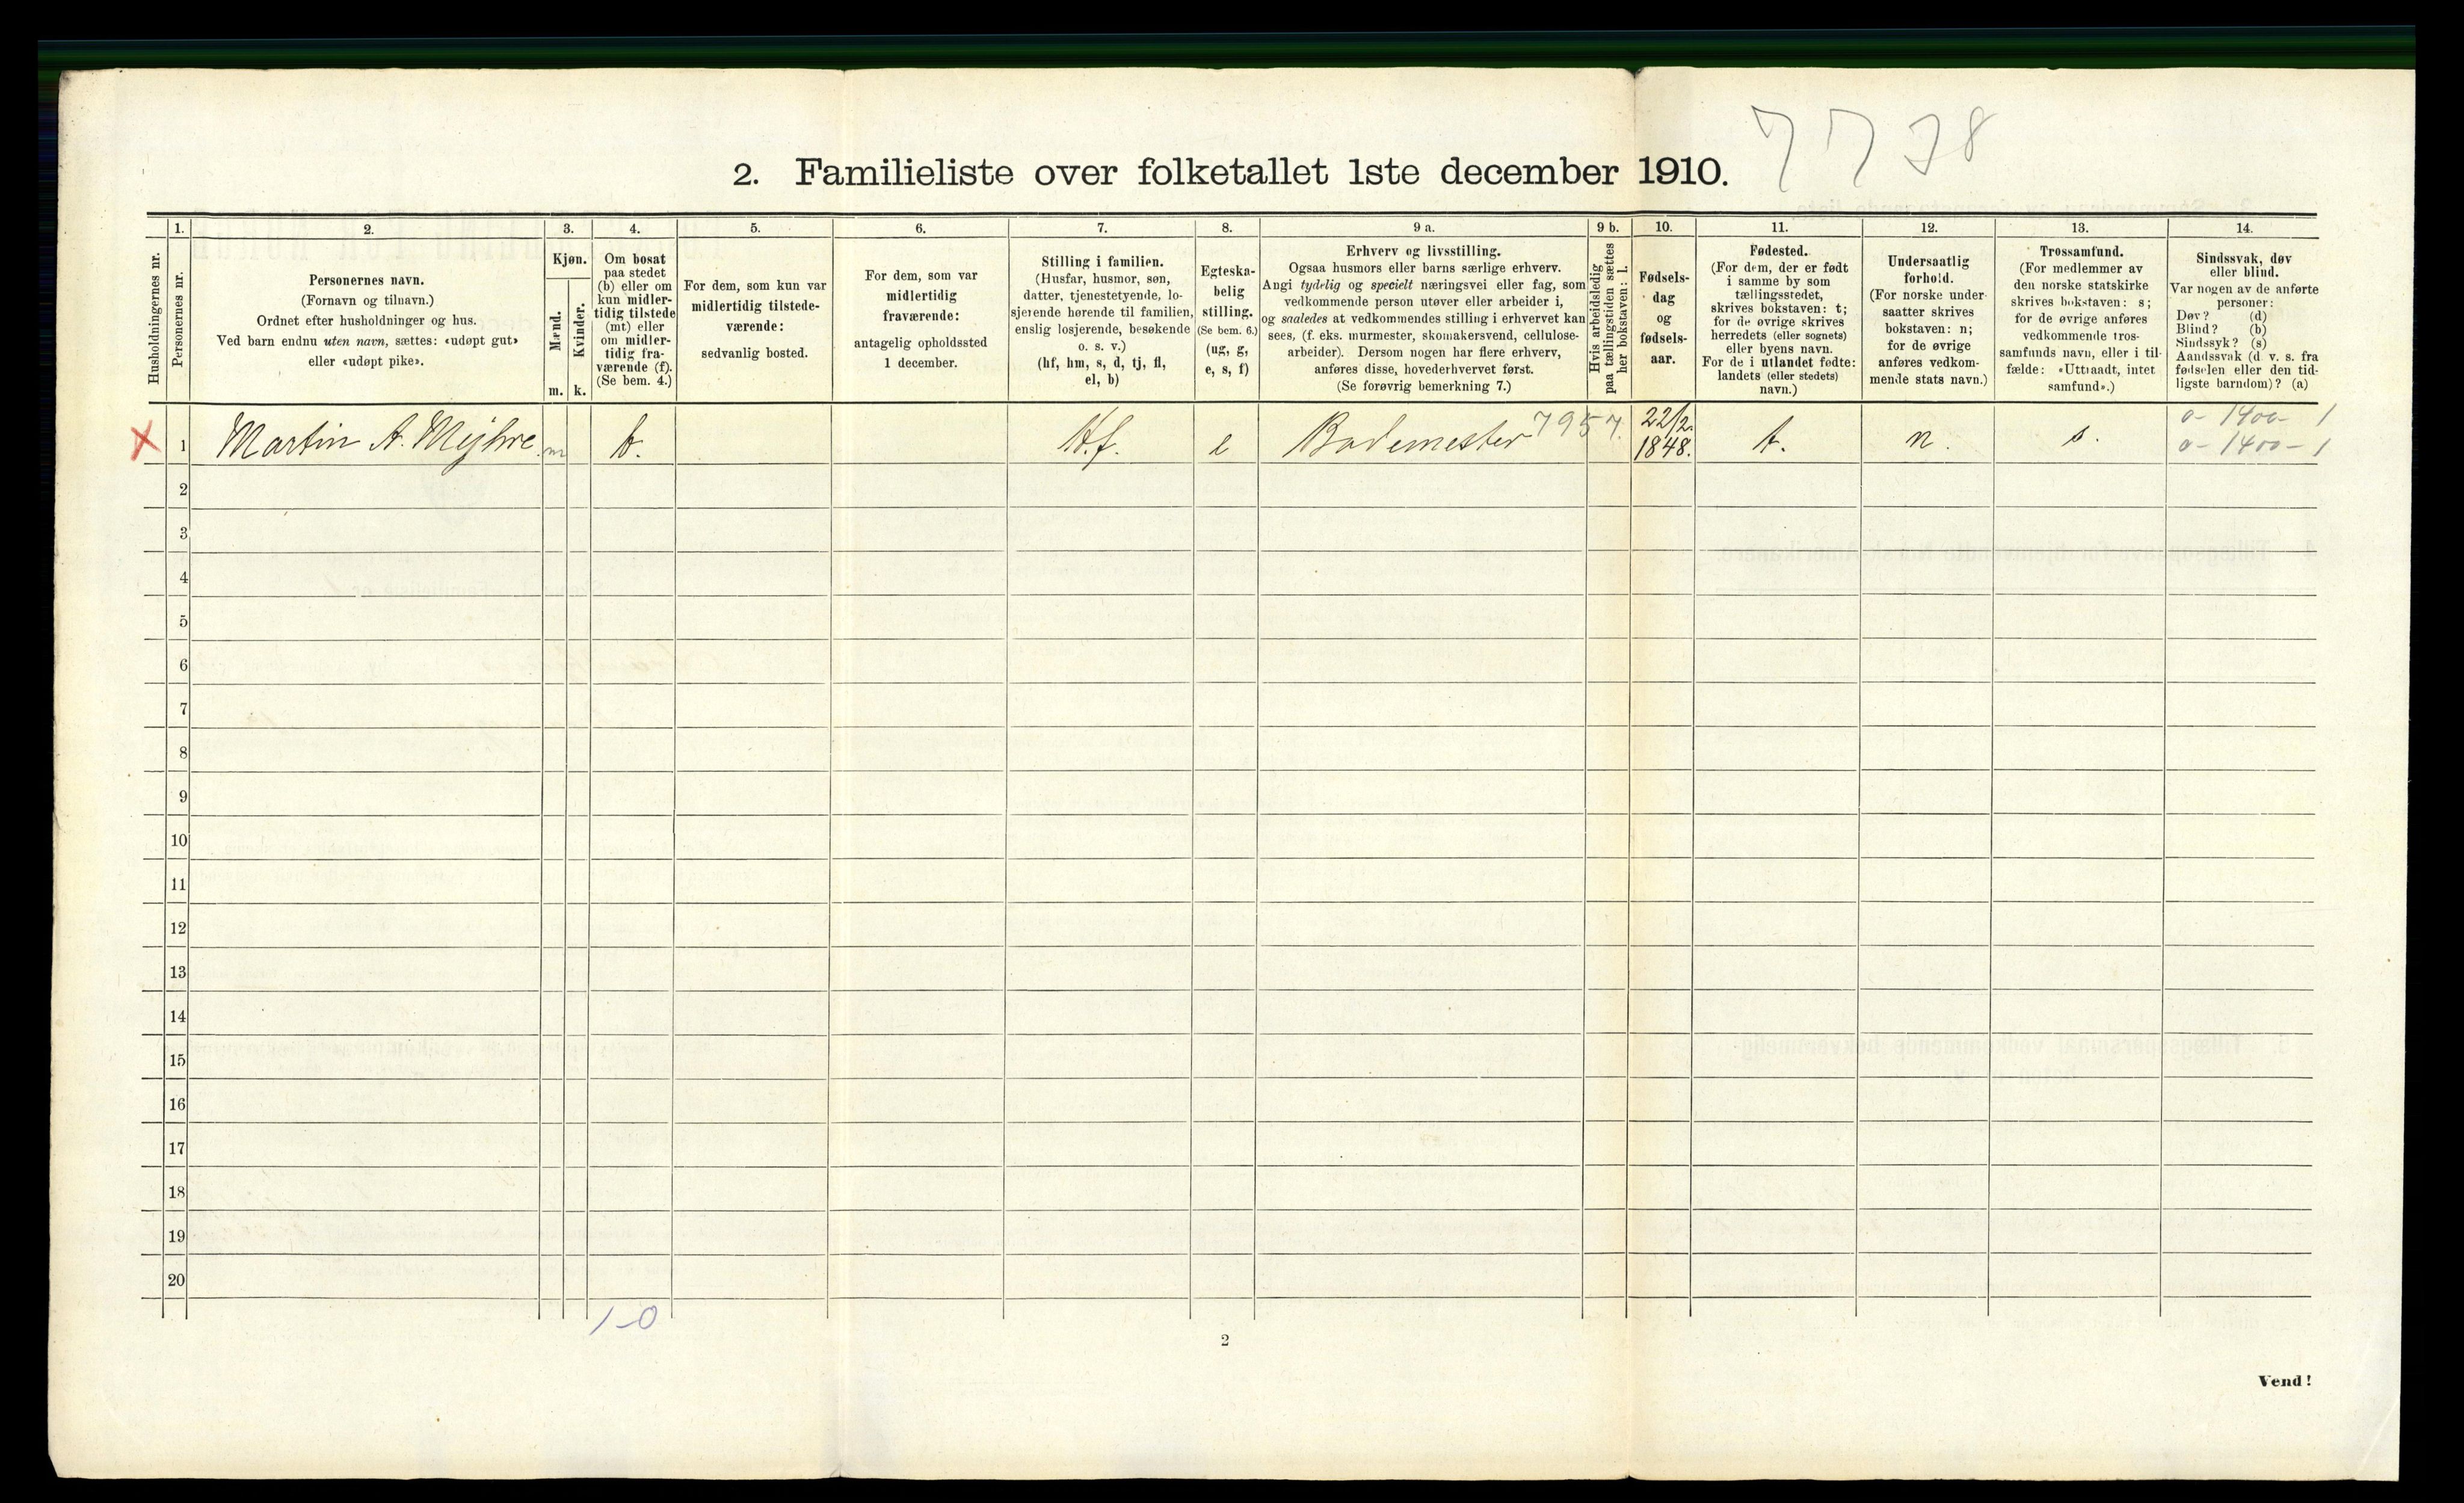 7778
2. Familieliste over folketallet 1ste december 1910.
Husholdningernes nr.
1.
Personernes nr.
2.
Personernes navn.
(Fornavn og tilnavn.)
Ordnet efter husholdninger og hus.
Ved barn endnu uten navn, sættes: «udøpt gut»
eller «udøpt pike».
3.
Kjøn.
Mænd.
Kvinder.
m. k.
4.
Om bosat
paa stedet
(b) eller om
kun midler-
tidig tilstede
(mt) eller
om midler-
tidig fra-
værende (f).
(Se bem. 4.)
5.
For dem, som kun var
midlertidig tilstede-
værende:
sedvanlig bosted.
6.
For dem, som var
midlertidig
fraværende:
antagelig opholdssted
1 december.
7.
Stilling i familien.
(Husfar, husmor, søn,
datter, tjenestetyende, lo-
sjerende hørende til familien,
enslig losjerende, besøkende
o. s. v.)
(hf, hm, s, d, tj, fl,
el, b)
8.
Egteska-
belig
stilling.
(Se bem. 6.)
(ug, g,
e, s, f)
9 a.
Erhverv og livsstilling.
Ogsaa husmors eller barns særlige erhverv.
Angi tydelig og specielt næringsvei eller fag, som
vedkommende person utøver eller arbeider i,
og saaledes at vedkommendes stilling i erhvervet kan
sees, (f. eks. murmester, skomakersvend, cellulose-
arbeider). Dersom nogen har flere erhverv,
anføres disse, hovederhvervet først.
(Se forøvrig bemerkning 7.)
9 b.
Hvis arbeidsledig
paa tællingstiden sættes
her bokstaven: l.
10.
Fødsels-
dag
og
fødsels-
aar.
11.
Fødested.
(For dem, der er født
i samme by som
tællingsstedet,
skrives bokstaven: t;
for de øvrige skrives
herredets (eller sognets)
eller byens navn.
For de i utlandet fødte:
landets (eller stedets)
navn.)
12.
Undersaatlig
forhold.
(For norske under-
saatter skrives
bokstaven: n;
for de øvrige
anføres vedkom-
mende stats navn.)
13.
Trossamfund.
(For medlemmer av
den norske statskirke
skrives bokstaven: s;
for de øvrige anføres
vedkommende tros-
samfunds navn, eller i til-
fælde: «Uttraadt, intet
samfund».)
14.
Sindssvak, døv
eller blind.
Var nogen av de anførte
personer:
Døv? (d)
Blind? (b)
Sindssyk? (s)
Aandssvak (d. v. s. fra
fødselen eller den tid-
ligste barndom)? (a)
X 1 Martin A. Mejhre. m b. H.f. e Bademester 7957. 22/2. 1848. t. n. s. 0-1400-1
0-1400-1
2
3
4
5
6
7
8
9
10
11
12
13
14
15
16
17
18
19
20
1-0
2
Vend!